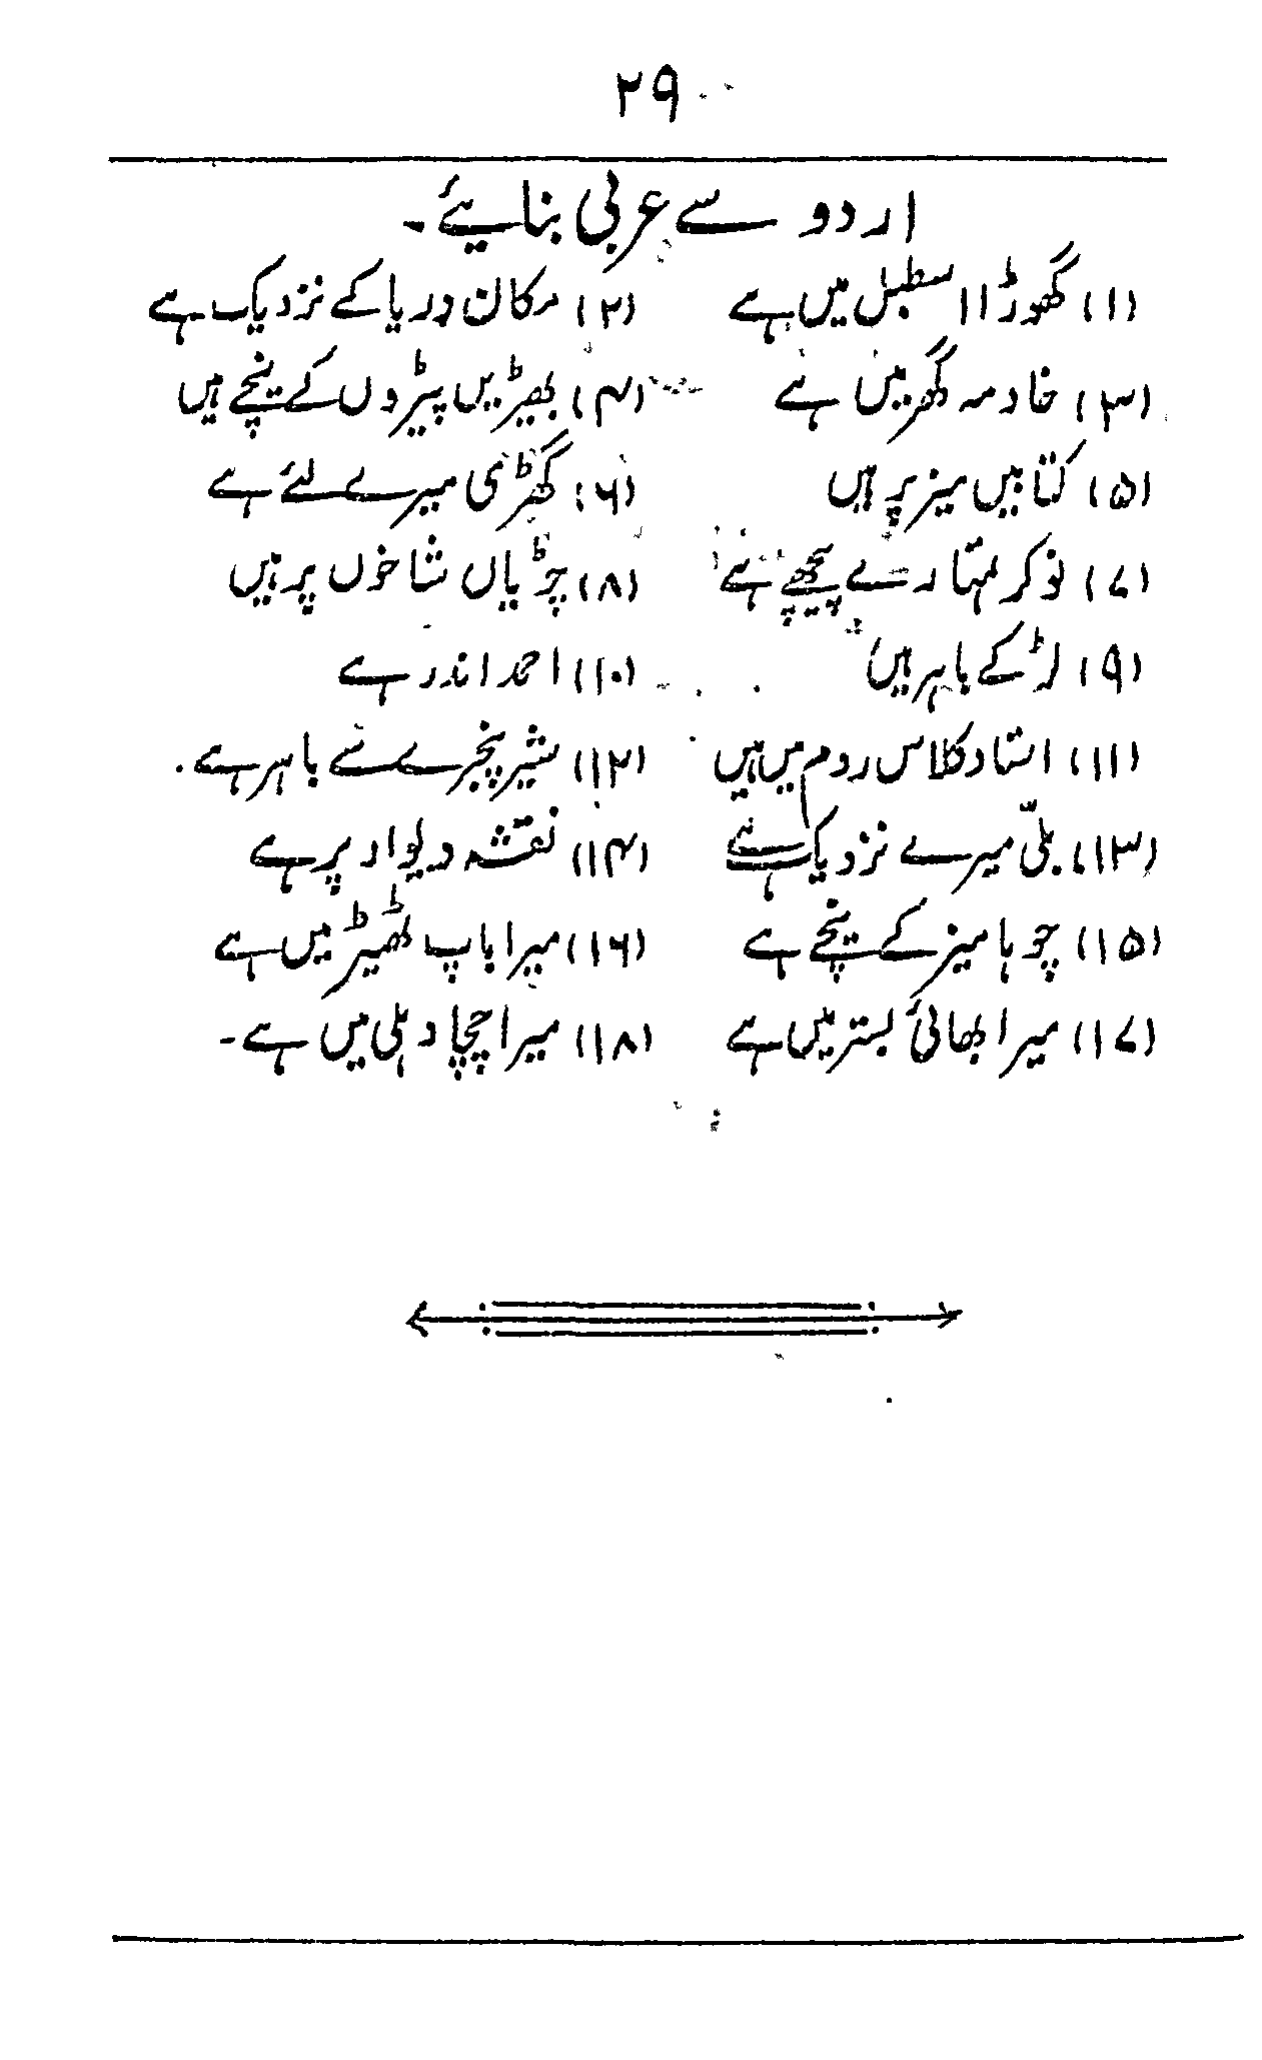 ۲۹
اردو سے عربی بنایئے۔
(۱) گھوڑا اسطبل میں ہے (۲) مکان دریا کے نزدیک ہے
(۳) خادمہ گھر میں ہے (۴) بھیڑیں پیڑوں کے نیچے ہیں
(۵) کتابیں میز پر ہیں (۶) گھڑی میرے لئے ہے
(۷) نوکر تمہارے پیچھے ہے (۸) چڑیاں شاخوں پر ہیں
(۹) لڑکے باہر ہیں (۱۰) احمد اندر ہے
(۱۱) استاد کلاس روم میں ہیں (۱۲) شیر پنجرے سے باہر ہے۔
(۱۳) بلّی میرے نزدیک ہے (۱۴) نقشہ دیوار پر ہے
(۱۵) چوہا میز کے نیچے ہے (۱۶) میرا باپ ٹھیٹر میں ہے
(۱۷) میرا بھائی بستر میں ہے (۱۸) میرا چچا دہلی میں ہے۔